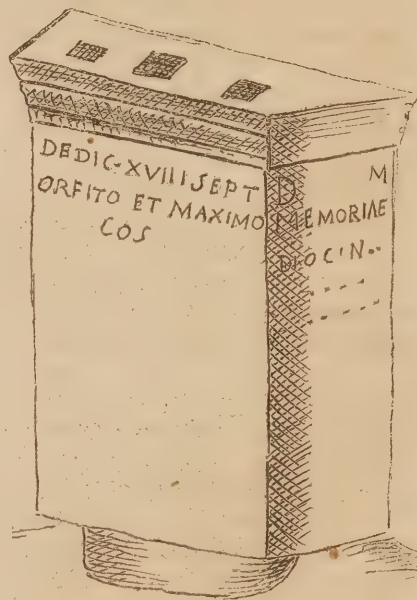 DEDIC·XVIII SEPT
ORFITO ET MAXIMO
COS
D M
MEMORIAE
DIOCIN..